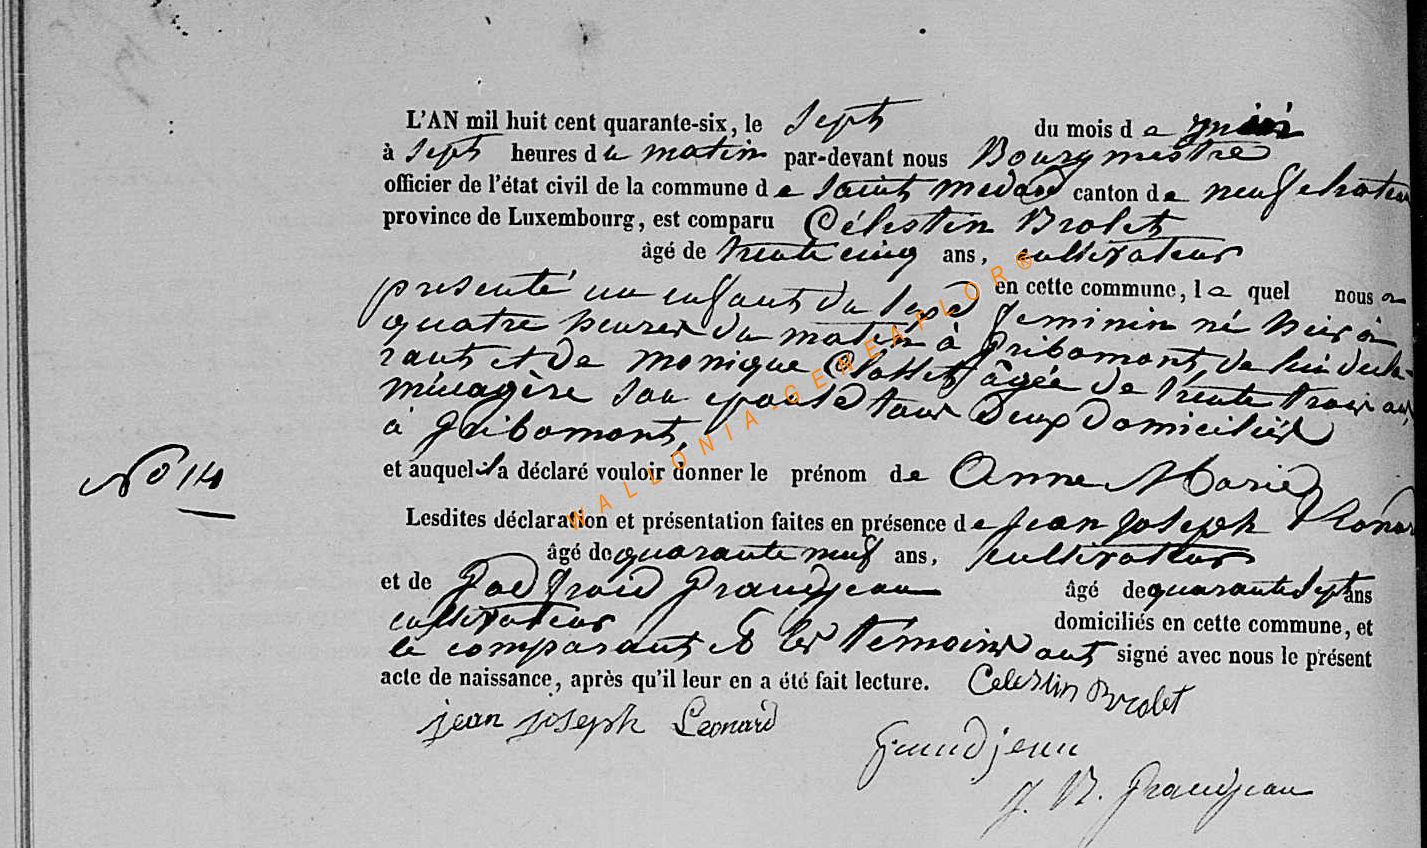 L'AN mil huit cent quarante-six, le sept du mois de
à sept heures du matin par-devant nous Bourgmestre
officier de l'état civil de la commune de Saint Medard canton de neufchateau
province de Luxembourg, est comparu Célestin Brolet
âgé de trente cinq ans, cultivateur
en cette commune, le quel nous a
présenté un enfant du sexe feminin né hier à
quatre heures du matin à Gribomont, de lui decla-
rant et de monique Collet âgée de trente trois ans,
ménagère son epouse tous deux domiciliés
à Gribomont,
No 14
et auquel il a déclaré vouloir donner le prénom de Anne Marie
Lesdites déclaration et présentation faites en présence de jean joseph Léonard
âgé de quarante neuf ans, cultivateur
et de Godfroid Grandjean âgé de quarante sept ans
cultivateur domiciliés en cette commune, et
le comparant et les témoins ont signé avec nous le présent
acte de naissance, après qu'il leur en a été fait lecture. Celestin Brolet
jean joseph Leonard
Grandjean
J. B. Grandjean
WALLONIA-GENEAFLOR®